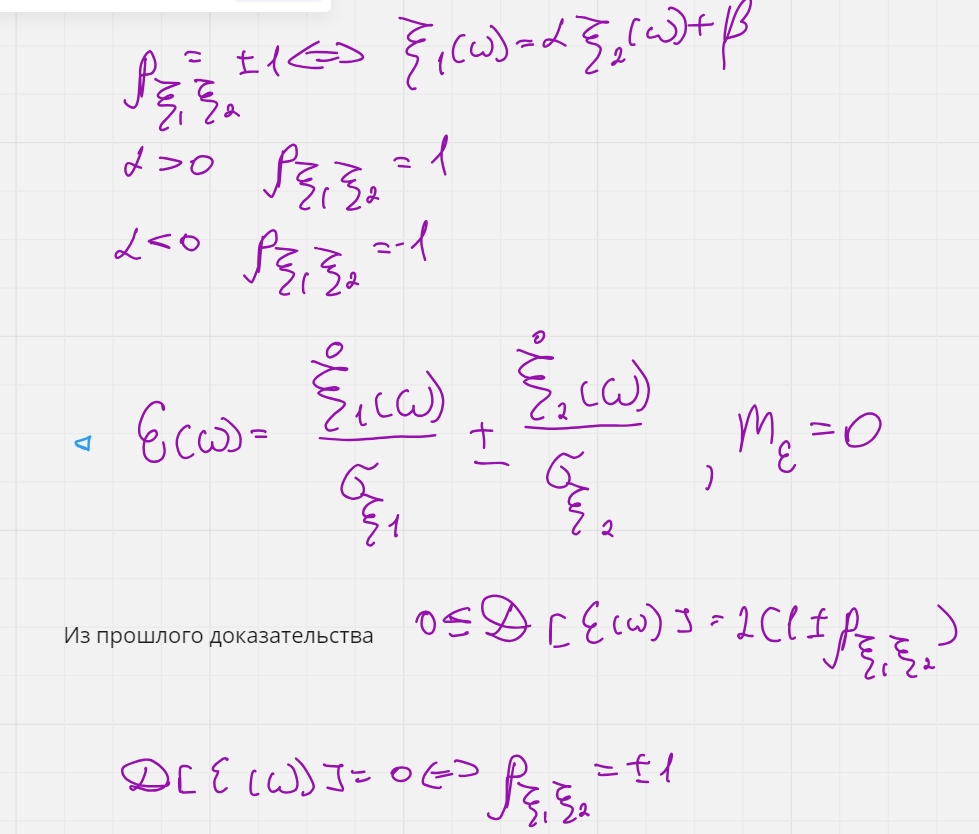 ρ_{ξ₁ξ₂} = ±1 ⟺ ξ₁(ω) = αξ₂(ω) + β
α > 0 ρ_{ξ₁ξ₂} = 1
α < 0 ρ_{ξ₁ξ₂} = -1
ε(ω) = ξ̊₁(ω)/σ_{ξ₁} ± ξ̊₂(ω)/σ_{ξ₂}, m_ε = 0
Из прошлого доказательства 0 ≤ D[ε(ω)] = 2(1 ± ρ_{ξ₁ξ₂})
D[ε(ω)] = 0 ⟺ ρ_{ξ₁ξ₂} = ±1